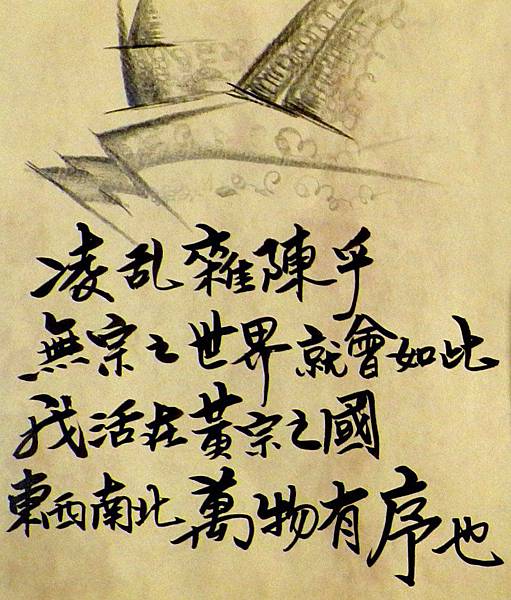 凌乱雜陳乎
無宗之世界就會如此
我活在黃宗之國
東西南北萬物有序也